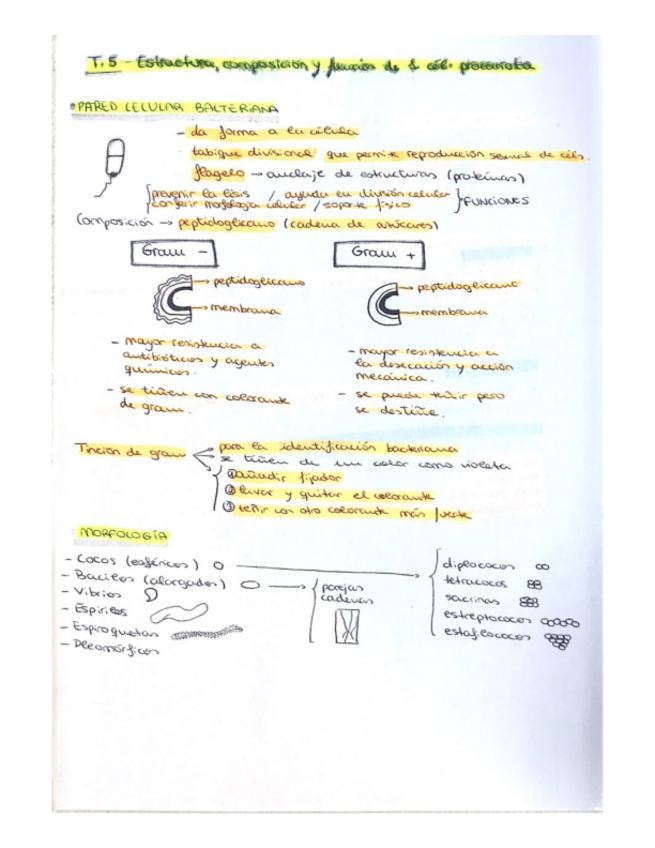 T.5 - Estructura, composición y función de 1 cél. procariota
PARED CELULAR BACTERIANA
- da forma a la célula
tabique divisional que permite reproducción sexual de céls.
flagelo → anclaje de estructuras (proteínas)
prevenir la lisis / ayuda en división celular
conferir morfología celular / soporte físico
FUNCIONES
Composición → peptidoglicano (cadena de azúcares)
Gram -
Gram +
→ peptidoglicano
→ membrana
→ peptidoglicano
→ membrana
- mayor resistencia a
antibióticos y agentes
químicos.
- se tiñen con colorante
de gram.
- mayor resistencia a
la desecación y acción
mecánica.
- se puede teñir pero
se destiñe.
Tinción de gram
para la identificación bacteriana
se tiñen de un color como violeta
① añadir fijador
② lavar y quitar el colorante
③ teñir con otro colorante más fuerte
MORFOLOGÍA
- Cocos (esféricos)
- Bacilos (alargados)
- Vibrios
- Espirilos
- Espiroquetas
- Pleomórficos
parejas
cadenas
diplococos
tetracocos
sacrinas
estreptococos
estafilococos